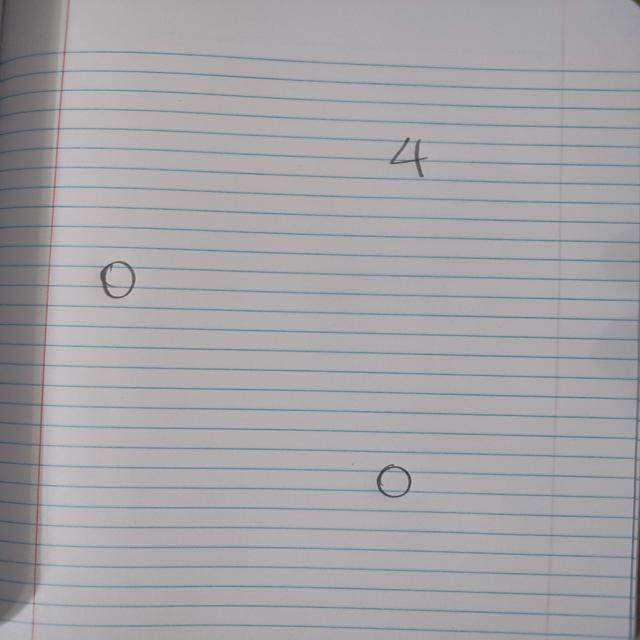 4
0
0